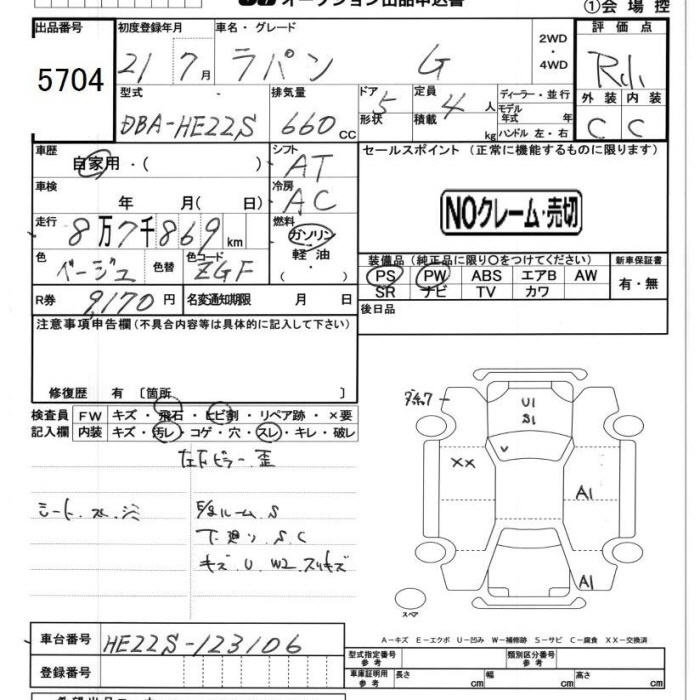 オークション出品申込書
①会場控
出品番号 初度登録年月 車名・グレード 評価点
5704 21 7月 ラパン G 2WD・4WD
外装 内装
C C
型式 排気量 ドア 定員 ディーラー・並行
DBA-HE22S 660cc 5 4人 モデル年式 年
形状 積載 kg ハンドル 左・右
車歴 シフト セールスポイント (正常に機能するものに限ります)
自家用・( ) AT
車検 冷房
年 月( 日) AC
NOクレーム・売切
走行 燃料
8万7千869km ガソリン
軽油
色 色替 色コード
ベージュ ZGF
装備品(純正品に限り○をつけてください) 新車保証書
PS PW ABS エアB AW 有・無
SR ナビ TV カワ
R券 9,170円 名変通知期限 月 日
後日品
注意事項申告欄(不具合内容等は具体的に記入して下さい)
修復歴 有 〔箇所 〕
検査員 FW キズ・飛石・ヒビ割・リペア跡・×要
記入欄 内装 キズ・汚レ・コゲ・穴・スレ・キレ・破レ
U1
S1
U
XX
A1
A1
スペア
シート.スレ.シミ
下廻り.S.C
キズ.U.W2.スリキズ
A-キズ E-エクボ U-凹み W-補修跡 S-サビ C-腐食 XX-交換済
車台番号 HE22S-123106
登録番号
型式指定番号 参考 類別区分番号 参考
車庫証明用 参考 長さ cm 幅 cm 高さ cm